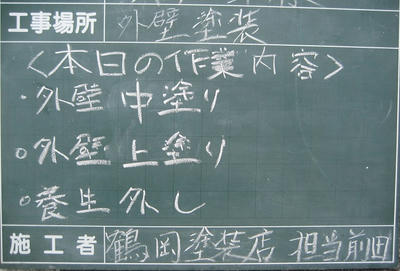 工事場所 外壁塗装
<本日の作業内容>
・外壁 中塗り
○外壁 上塗り
○養生外し
施工者 鶴岡塗装店 担当前田